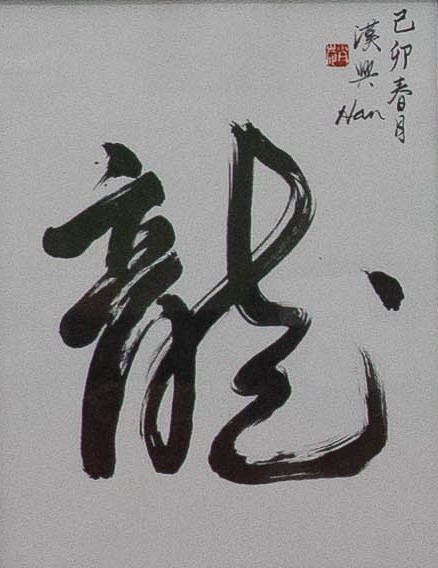 己卯春月
漢興
Han
龍